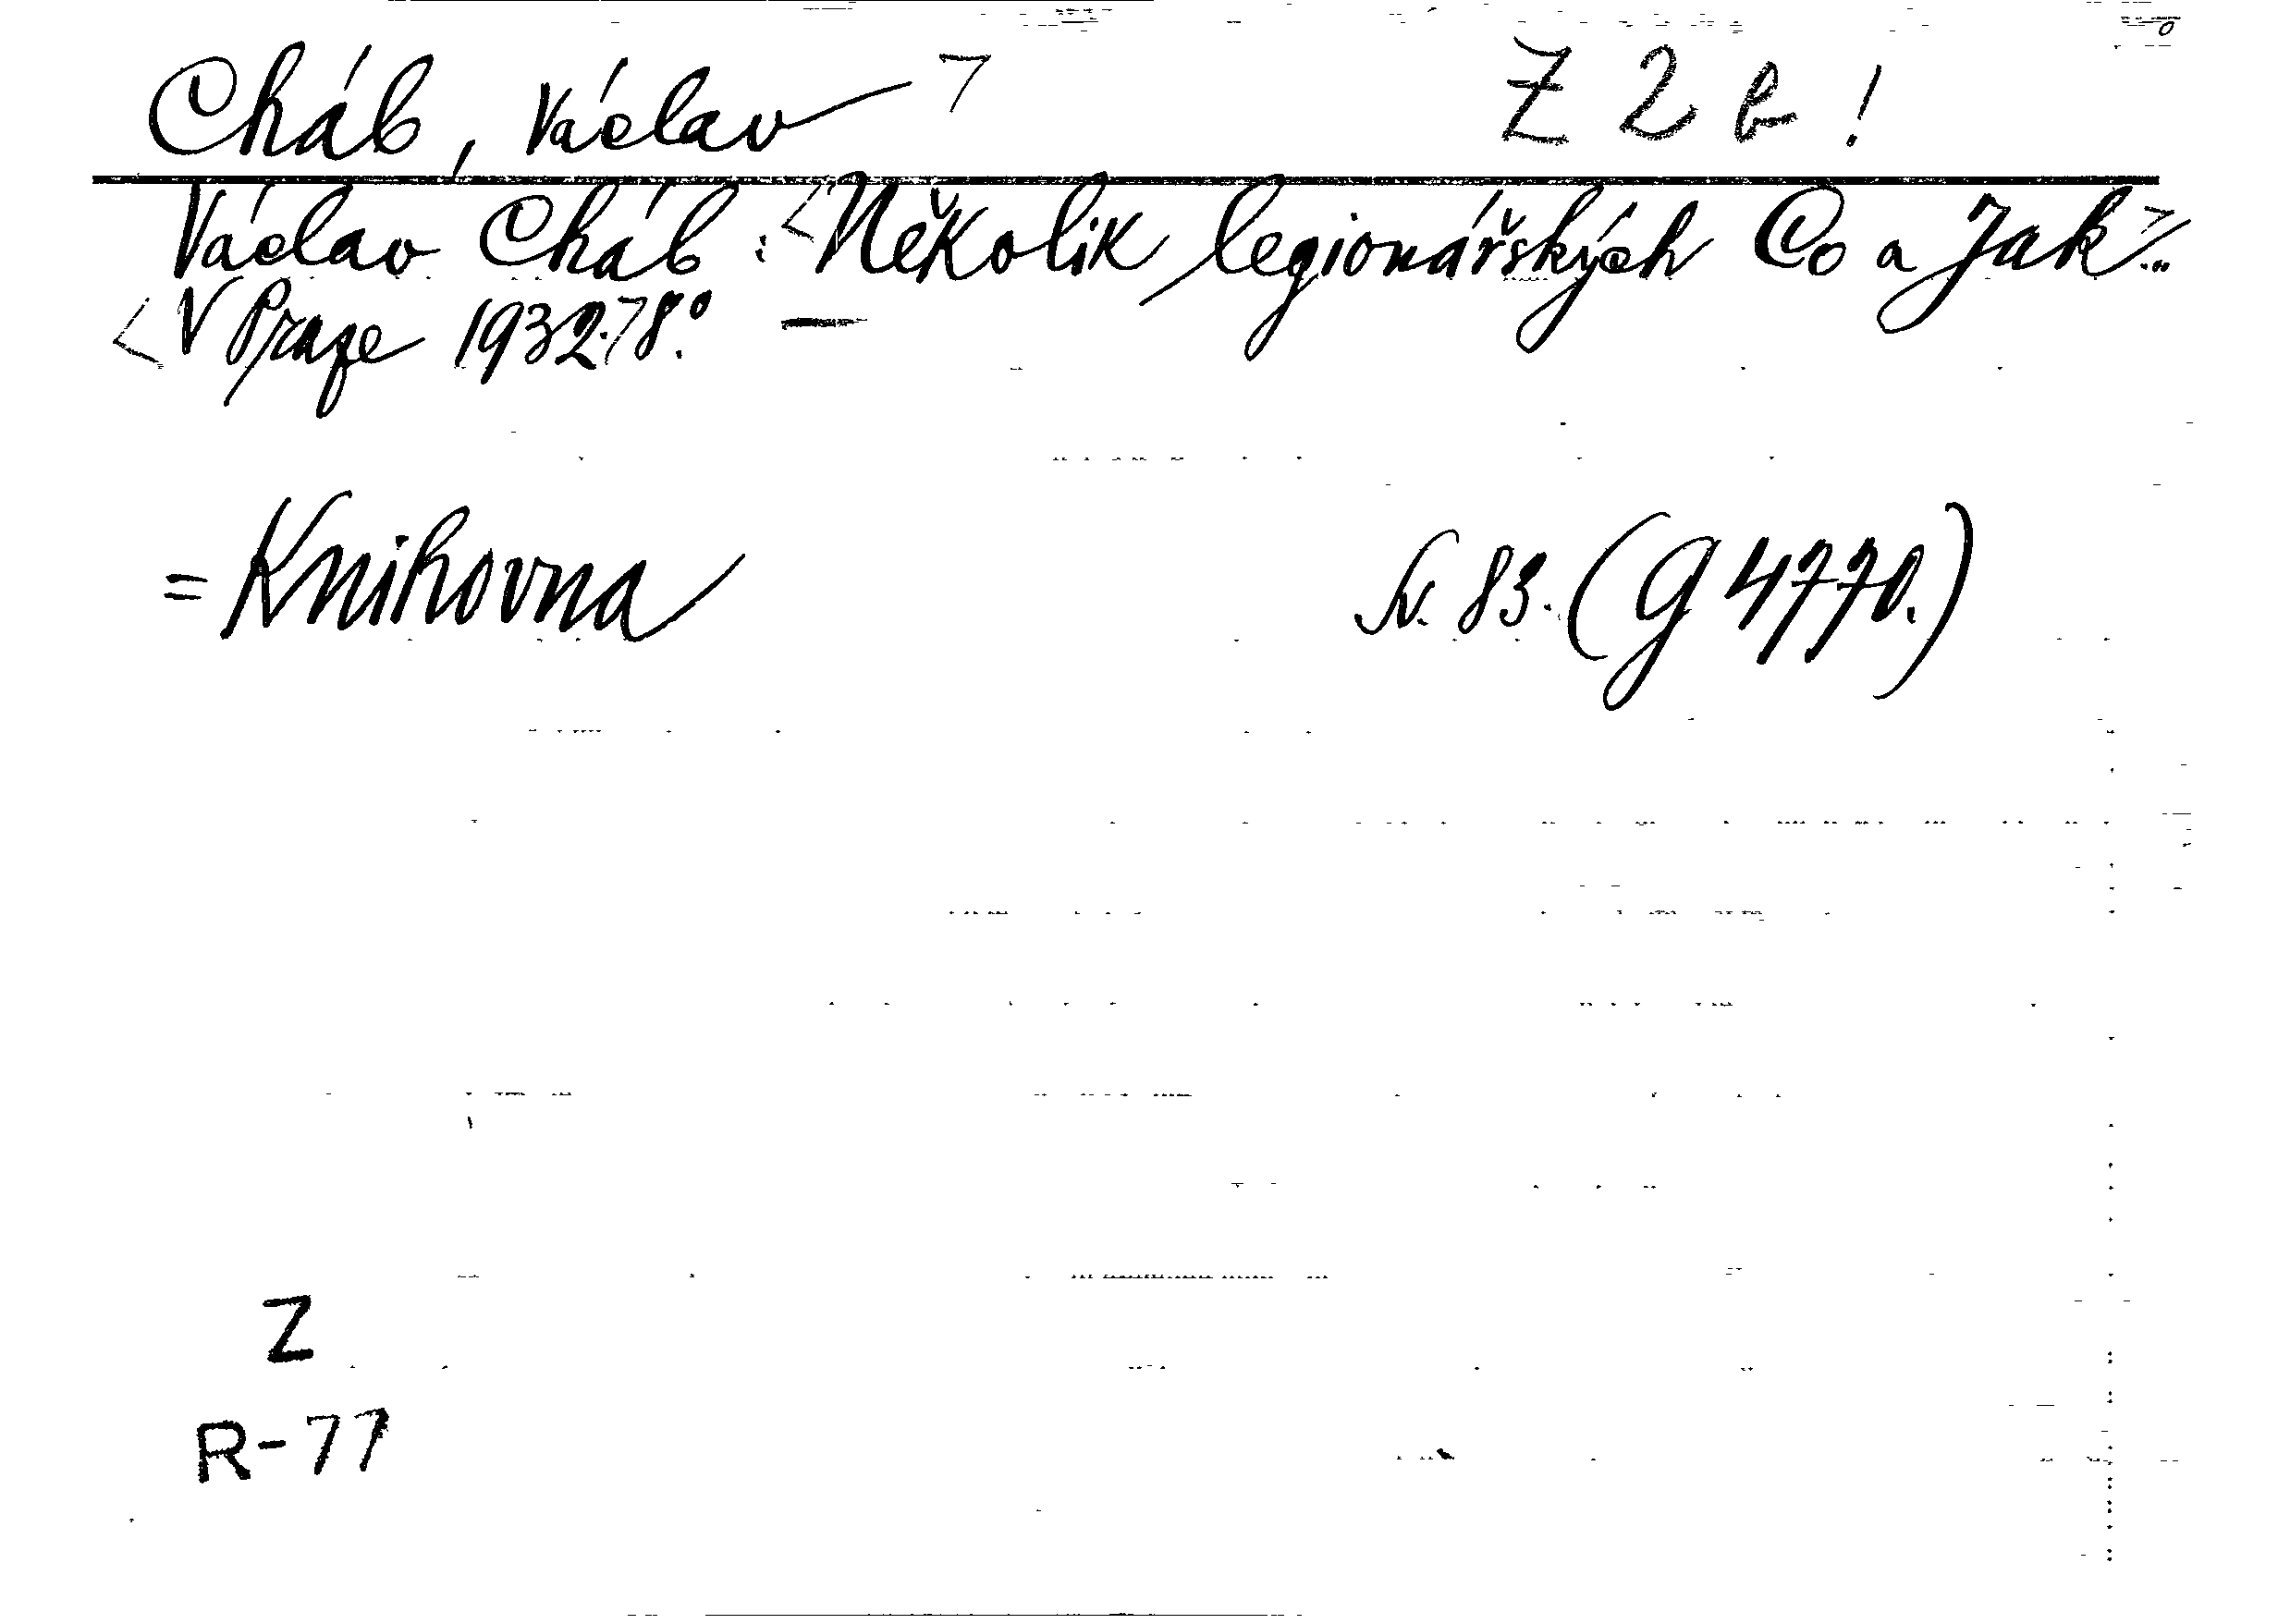 Cháb, Václav Z 2 b !
Václav Cháb: Několik legionářských Co a Jak...
V Praze 1932. 8°. —
= Knihovna Sv. 83. (G 4770.)
Z
R-77